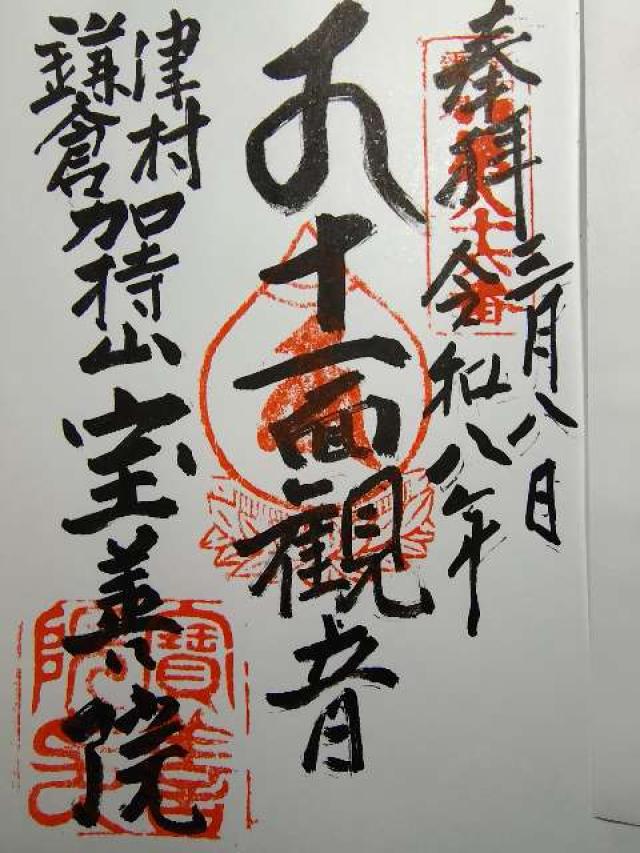 奉拝
令和八年
三月八日
十一面観音
津村
鎌倉
加持山
宝善院
寶善院